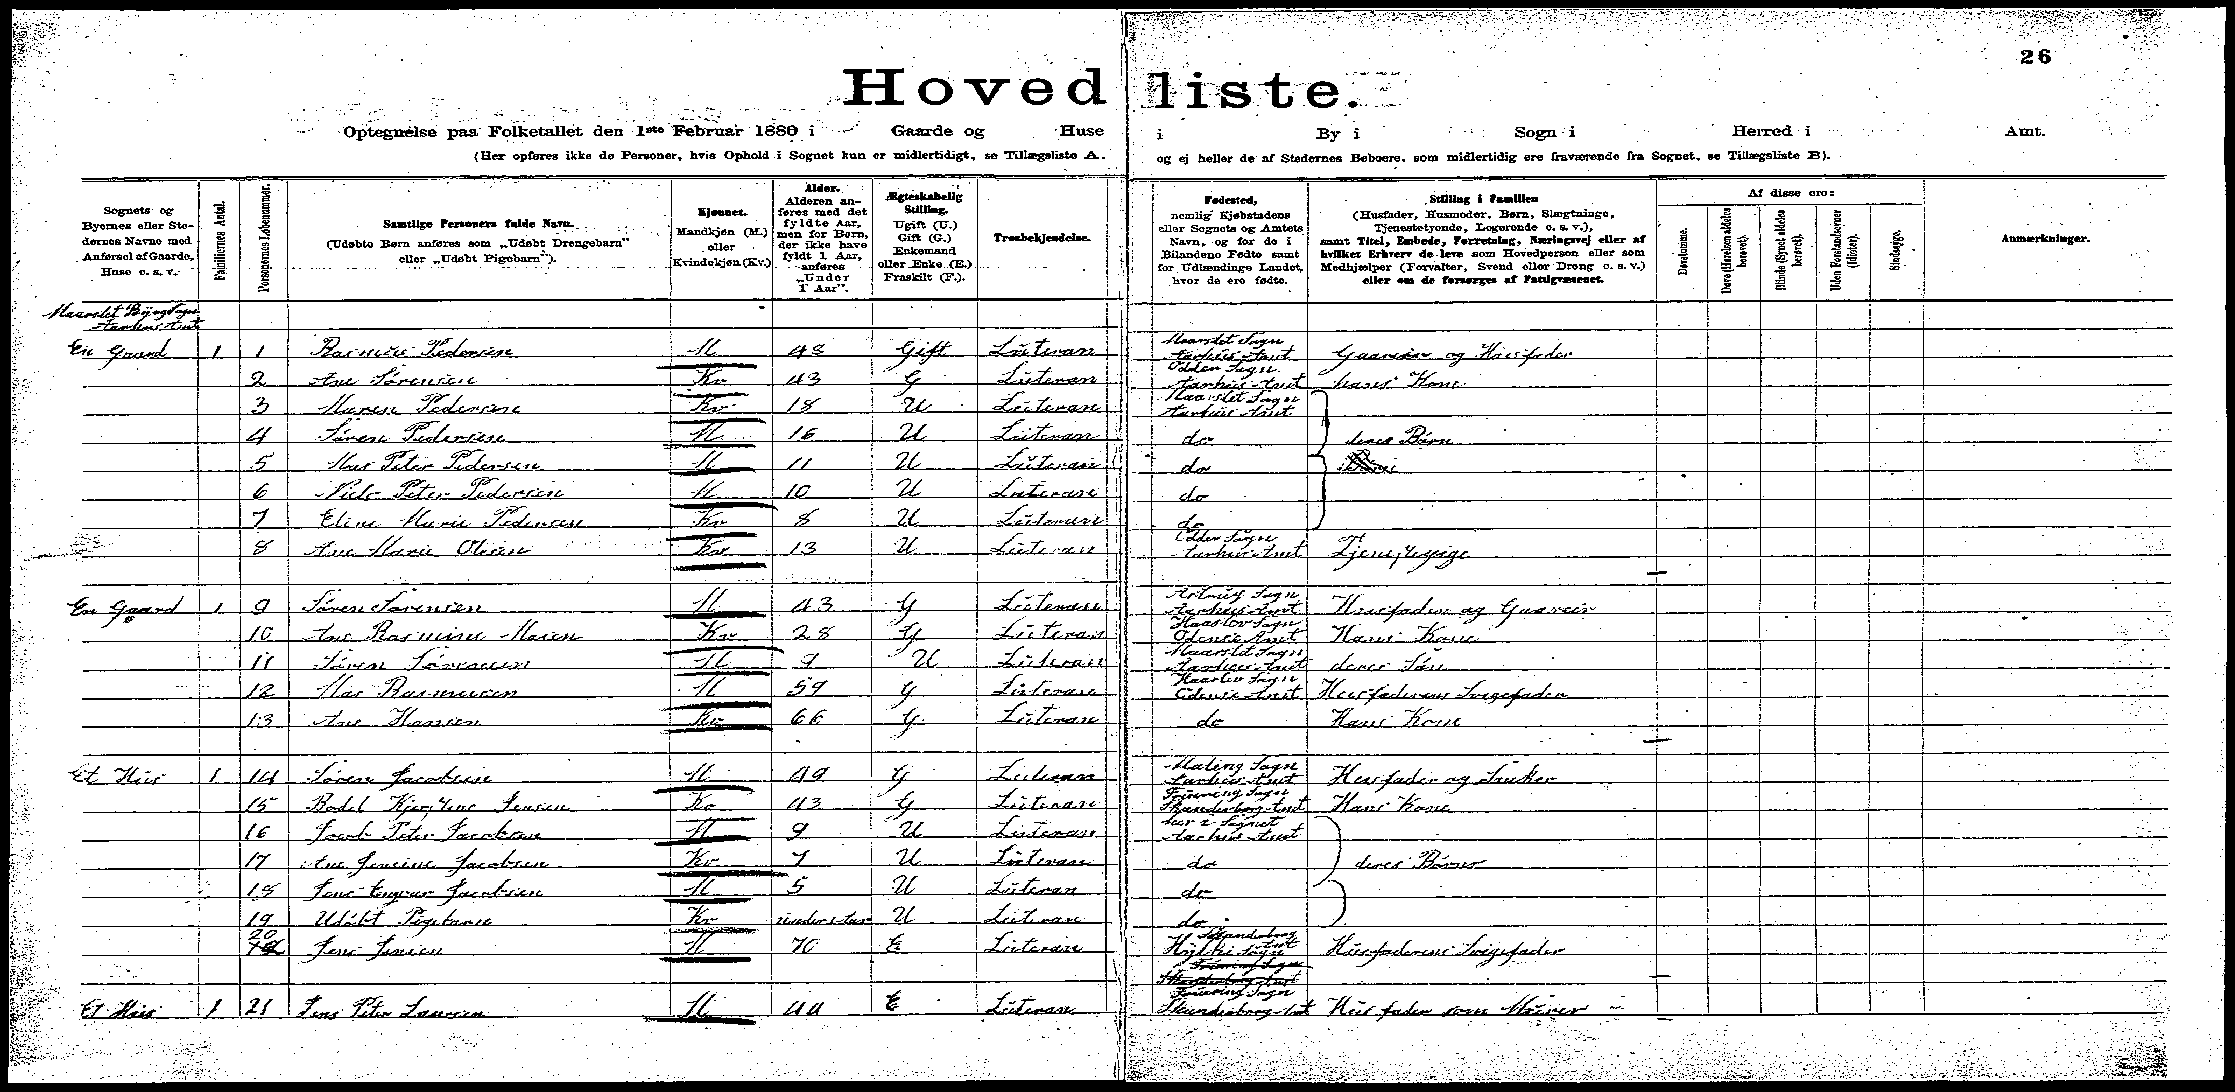 26
Hovedliste.
Optegnelse paa Folketallet den 1ste Februar 1880 i Gaarde og Huse i By i Sogn i Herred i Amt.
(Her opføres ikke de Personer, hvis Ophold i Sognet kun er midlertidigt, se Tillægsliste A. og ej heller de af Stedernes Beboere, som midlertidig ere fraværende fra Sognet, se Tillægsliste B).
Sognets og Byernes eller Stedernes Navne med Anførsel af Gaarde, Huse o. s. v.
Familiernes Antal.
Personernes Løbenummer.
Samtlige Personers fulde Navn.
(Udøbte Børn anføres som „Udøbt Drengebarn" eller „Udøbt Pigebarn").
Kjønnet. Mandkjøn (M.) eller Kvindekjøn (Kv.)
Alder. Alderen anføres med det fyldte Aar, men for Børn, der ikke have fyldt 1 Aar, anføres „Under 1 Aar".
Ægteskabelig Stilling. Ugift (U.) Gift (G.) Enkemand eller Enke (E.) Fraskilt (F.).
Troesbekjendelse.
Fødested, nemlig Kjøbstadens eller Sognets og Amtets Navn, og for de i Bilandene Fødte samt for Udlændinge Landet, hvor de ere fødte.
Stilling i Familien (Husfader, Husmoder, Børn, Slægtninge, Tjenestetyende, Logerende o. s. v.), samt Titel, Embede, Forretning, Næringsvej eller af hvilket Erhverv de leve som Hovedperson eller som Medhjælper (Forvalter, Svend eller Dreng o. s. v.) eller om de forsørges af Fattigvæsenet.
Af disse ere:
Døvstumme.
Døve (Hørelsen aldeles berøvet).
Blinde (Synet aldeles berøvet).
Uden Forstandsevner (Idioter).
Sindssyge.
Anmærkninger.
Maarslet By og Sogn
Aarhus Amt
En Gaard 1 1 Rasmus Pedersen M 48 Gift Luteran Maarslet Sogn Aarhus Amt Gaardeier og Husfader
2 Ane Sørensen Kv 43 G Luteran Odder Sogn Aarhus Amt hans Kone
3 Maren Pedersen Kv 18 U Luteran Maarslet Sogn Aarhus Amt
4 Søren Pedersen M 16 U Luteran do deres Børn
5 Mas Peter Pedersen M 11 U Luteran do
6 Niels Peter Pedersen M 10 U Luteran do
7 Eline Marie Pedersen Kv 8 U Luteran do
8 Ane Marie Olesen Kv 13 U Luteran Odder Sogn Aarhus Amt Tjenestepige
En Gaard 1 9 Søren Sørensen M 43 G Luteran Sogn Aarhus Amt Husfader og Gaardeier
10 Ane Rasmine Masen Kv 28 G Luteran Haarslev Sogn Odense Amt Hans Kone
11 Søren Sørensen M 9 U Luteran Maarslet Sogn Aarhus Amt deres Søn
12 Mas Rasmusen M 59 G Luteran Haarslev Sogn Odense Amt Husfaderens Svigefader
13 Ane Hansen Kv 66 G Luteran do Hans Kone
Et Hus 1 14 Søren Jacobsen M 49 G Luteran Maling Sogn Aarhus Amt Husfader og Sneker
15 Bodel Kjerstine Jensen Kv 43 G Luteran Fruering Sogn Skanderborg Amt Hans Kone
16 Jacob Peter Jacobsen M 9 U Luteran her i Sognet Aarhus Amt
17 Ane Jensine Jacobsen Kv 7 U Luteran do deres Børn
18 Jens Jacobsen M 5 U Luteran do
19 Udøbt Pigebarn Kv under 1 Aar U Luteran do
20 Jens Jensen M 70 E Luteran Hylke Sogn Skanderborg Amt Husfaderens Svigefader
Et Hus 1 21 Jens Peter Laursen M 44 E Luteran Fruering Sogn Skanderborg Amt Husfader som Murer